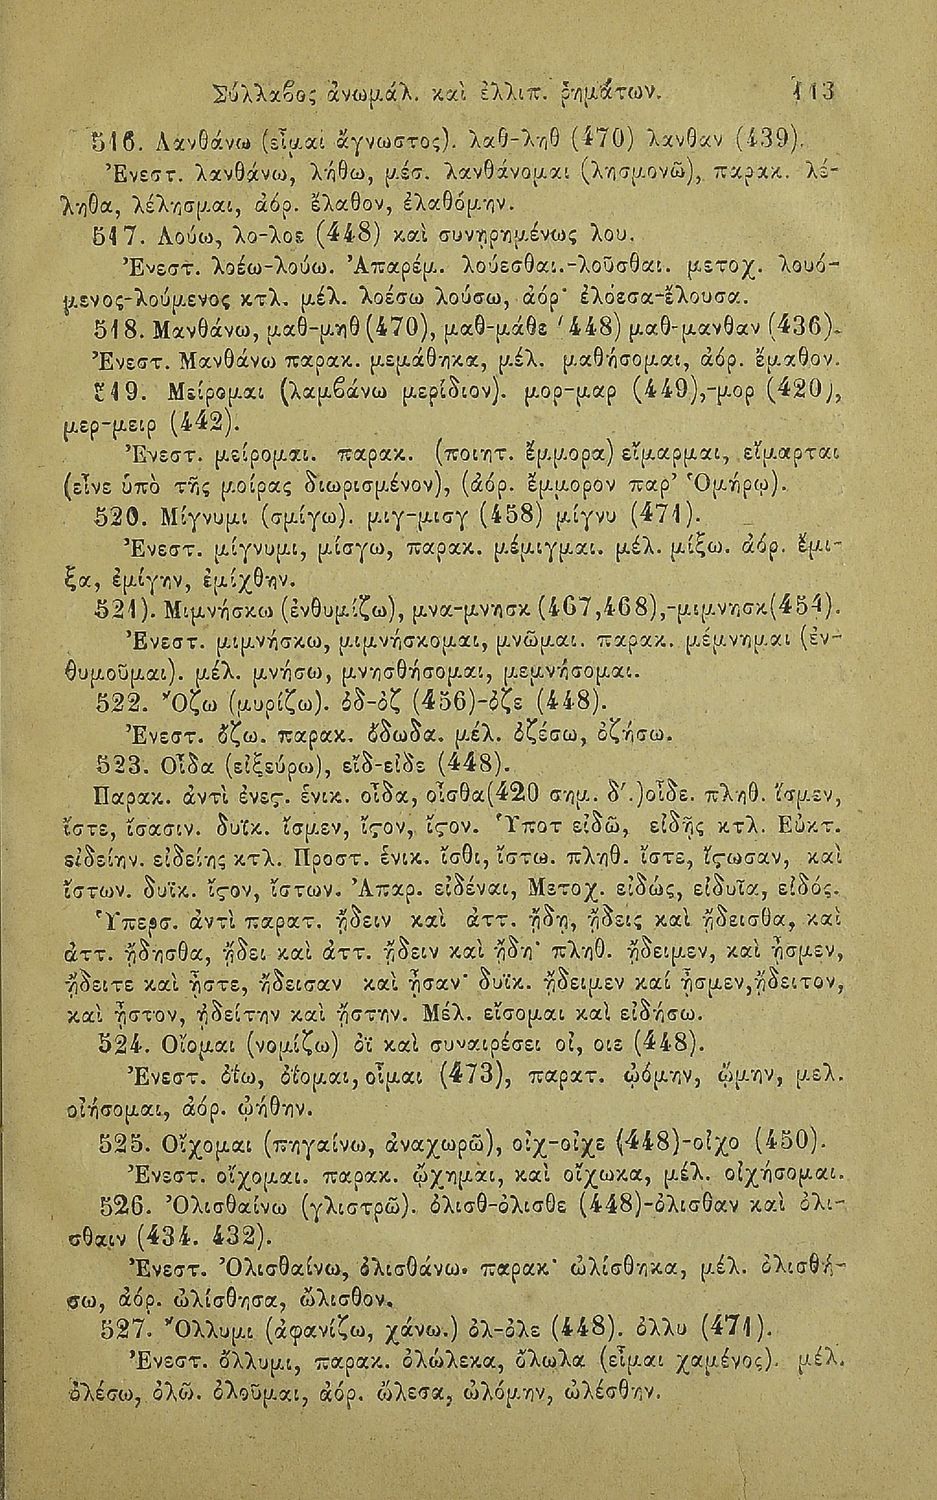 Σύλλαβος ἀνωμάλ. καὶ ἐλλιπ. ῥημάτων. 113
516. Λανθάνω (εἶμαι ἄγνωστος). λαθ-ληθ (470) λανθαν (439).
Ἐνεστ. λανθάνω, λήθω, μέσ. λανθάνομαι (λησμονῶ), παρακ. λέ-
ληθα, λέλησμαι, ἀόρ. ἔλαθον, ἐλαθόμην.
517. Λούω, λο-λοε (448) καὶ συνῃρημένως λου.
Ἐνεστ. λοέω-λούω. Ἀπαρέμ. λούεσθαι.-λοῦσθαι. μετοχ. λουό-
μενος-λούμενος κτλ. μέλ. λοέσω λούσω, ἀόρ· ἐλόεσα-ἔλουσα.
518. Μανθάνω, μαθ-μηθ (470), μαθ-μάθε (448) μαθ-μανθαν (436).
Ἐνεστ. Μανθάνω παρακ. μεμάθηκα, μέλ. μαθήσομαι, ἀόρ. ἔμαθον.
519. Μείρομαι (λαμβάνω μερίδιον). μορ-μαρ (449),-μορ (420),
μερ-μειρ (442).
Ἐνεστ. μείρομαι. παρακ. (ποιητ. ἔμμορα) εἵμαρμαι, εἵμαρται
(εἶνε ὑπὸ τῆς μοίρας διωρισμένον), (ἀόρ. ἔμμορον παρ' Ὁμήρῳ).
520. Μίγνυμι (σμίγω). μιγ-μισγ (458) μίγνυ (471).
Ἐνεστ. μίγνυμι, μίσγω, παρακ. μέμιγμαι. μέλ. μίξω. ἀόρ. ἔμι-
ξα, ἐμίγην, ἐμίχθην.
521). Μιμνήσκω (ἐνθυμίζω), μνα-μνησκ (467,468),-μιμνησκ(454).
Ἐνεστ. μιμνήσκω, μιμνήσκομαι, μνῶμαι. παρακ. μέμνημαι (ἐν-
θυμοῦμαι). μέλ. μνήσω, μνησθήσομαι, μεμνήσομαι.
522. Ὄζω (μυρίζω). ὀδ-ὀζ (456)-ὀζε (448).
Ἐνεστ. ὄζω. παρακ. ὄδωδα. μέλ. ὀζέσω, ὀζήσω.
523. Οἶδα (εἰξεύρω), εἰδ-εἰδε (448).
Παρακ. ἀντὶ ἐνεστ. ἑνικ. οἶδα, οἶσθα(420 σημ. δ'.)οἶδε. πληθ. ἴσμεν,
ἴστε, ἴσασιν. δυϊκ. ἴσμεν, ἴστον, ἴστον. Ὑποτ εἰδῶ, εἰδῇς κτλ. Εὐκτ.
εἰδείην. εἰδείης κτλ. Προστ. ἑνικ. ἴσθι, ἴστω. πληθ. ἴστε, ἴστωσαν, καὶ
ἴστων. δυϊκ. ἴστον, ἴστων. Ἀπαρ. εἰδέναι, Μετοχ. εἰδώς, εἰδυῖα, εἰδός.
Ὑπερσ. ἀντὶ παρατ. ᾔδειν καὶ ἀττ. ᾔδη, ᾔδεις καὶ ᾔδεισθα, καὶ
ἀττ. ᾔδησθα, ᾔδει καὶ ἀττ. ᾔδειν καὶ ᾔδη· πληθ. ᾔδειμεν, καὶ ᾖσμεν,
ᾔδειτε καὶ ᾖστε, ᾔδεισαν καὶ ᾖσαν· δυϊκ. ᾔδειμεν καί ᾖσμεν, ᾔδειτον,
καὶ ᾖστον, ᾐδείτην καὶ ᾔστην. Μέλ. εἴσομαι καὶ εἰδήσω.
524. Οἴομαι (νομίζω) ὀϊ καὶ συναιρέσει οἰ, οιε (448).
Ἐνεστ. ὀΐω, ὀΐομαι, οἶμαι (473), παρατ. ᾠόμην, ᾤμην, μελ.
οἰήσομαι, ἀόρ. ᾠήθην.
525. Οἴχομαι (πηγαίνω, ἀναχωρῶ), οἰχ-οἰχε (448)-οἰχο (450).
Ἐνεστ. οἴχομαι. παρακ. ᾤχημαι, καὶ οἴχωκα, μέλ. οἰχήσομαι.
526. Ὀλισθαίνω (γλιστρῶ). ὀλισθ-ὀλισθε (448)-ὀλισθαν καὶ ὀλι-
σθαιν (434. 432).
Ἐνεστ. Ὀλισθαίνω, ὀλισθάνω. παρακ· ὠλίσθηκα, μέλ. ὀλισθή-
σω, ἀόρ. ὠλίσθησα, ὤλισθον.
527. Ὄλλυμι (ἀφανίζω, χάνω.) ὀλ-ὀλε (448). ὀλλυ (471).
Ἐνεστ. ὄλλυμι, παρακ. ὀλώλεκα, ὄλωλα (εἶμαι χαμένος). μέλ.
ὀλέσω, ὀλῶ. ὀλοῦμαι, ἀόρ. ὤλεσα, ὠλόμην, ὠλέσθην.